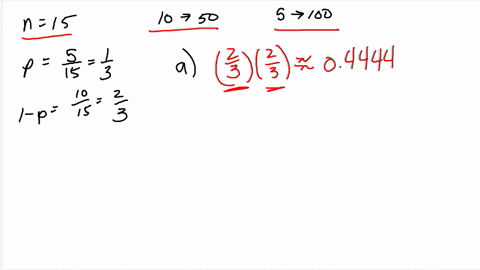 n = 15
10 → 50
5 → 100
p = 5/15 = 1/3
a) (2/3)(2/3) ≈ 0.4444
1-p = 10/15 = 2/3